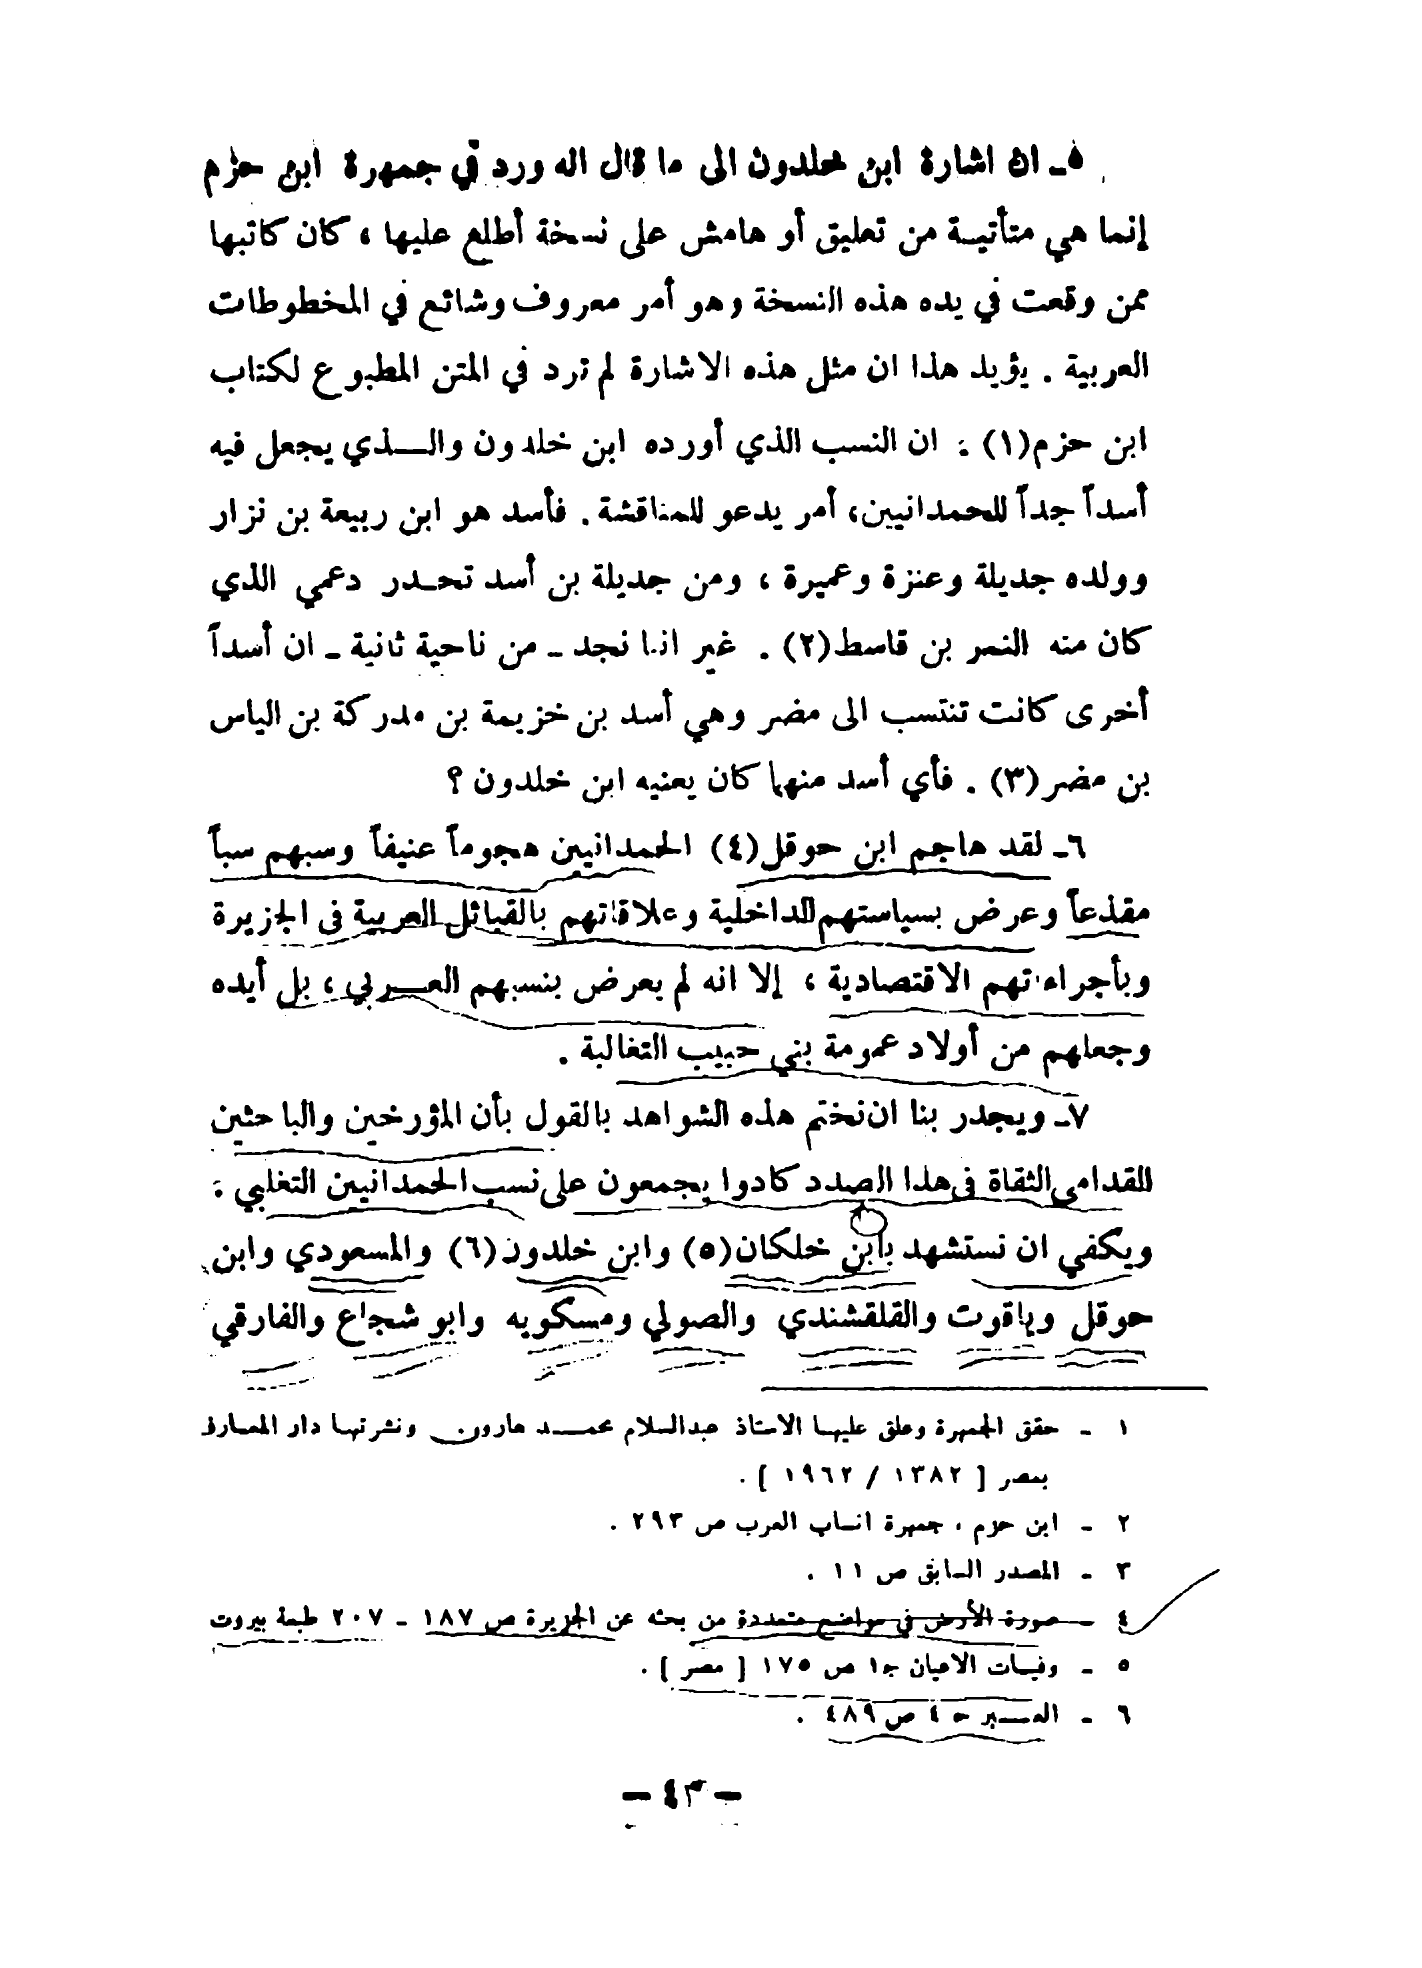 ٥ـ ان اشارة ابن خلدون الى ما قال انه ورد في جمهرة ابن حزم
إنما هي متأتيـة من تعليق أو هامش على نسخة أطلع عليها ، كان كاتبها
ممن وقعت في يده هذه النسخة وهو أمر معروف وشائع في المخطوطات
العربية . يؤيد هذا ان مثل هذه الاشارة لم ترد في المتن المطبوع لكتاب
ابن حزم(١) : ان النسب الذي أورده ابن خلدون والــذي يجعل فيه
أسداً جداً للحمدانيين، أمر يدعو للمناقشة . فأسد هو ابن ربيعة بن نزار
وولده جديلة وعنزة وعميرة ، ومن جديلة بن أسد تحـدر دعمي الذي
كان منه النمر بن قاسط(٢) . غير اننا نجد ـ من ناحية ثانية ـ ان أسداً
أخرى كانت تنتسب الى مضر وهي أسد بن خزيمة بن مدركة بن الياس
بن مضر(٣) . فأي أسد منهما كان يعنيه ابن خلدون ؟
٦ـ لقد هاجم ابن حوقل(٤) الحمدانيين هجوماً عنيفاً وسبهم سباً
مقذعاً وعرض بسياستهم الداخلية وعلاقاتهم بالقبائل العربية في الجزيرة
وبأجراءاتهم الاقتصادية ، إلا انه لم يعرض بنسبهم العــربي ، بل أيده
وجعلهم من أولاد عمومة بني حبيب التغالبة .
٧ـ ويجدر بنا ان نختم هذه الشواهد بالقول بأن المؤرخين والباحثين
القدامى الثقاة في هذا الصدد كادوا يجمعون على نسب الحمدانيين التغلبي :
ويكفي ان نستشهد بابن خلكان(٥) وابن خلدون(٦) والمسعودي وابن
حوقل وياقوت والقلقشندي والصولي ومسكويه وابو شجاع والفارقي
١ ـ حقق الجمهرة وعلق عليهـا الاستاذ عبدالسلام محمــد هارون ونشرتهـا دار المعارف
بمصر [ ١٣٨٢ / ١٩٦٢ ] .
٢ ـ ابن حزم ، جمهرة انساب العرب ص ٢٩٣ .
٣ ـ المصدر السابق ص ١١ .
٤ ـ صورة الأرض في مواضع متعددة من بحثه عن الجزيرة ص ١٨٧ ـ ٢٠٧ طبعة بيروت
٥ ـ وفيـات الاعيان جـ١ ص ١٧٥ [ مصر ] .
٦ ـ العــبر حـ ٤ ص ٤٨٩ .
ـ ٤٣ ـ